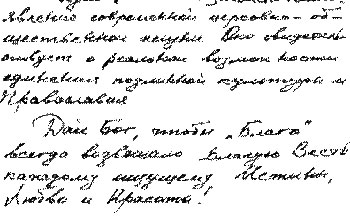 явление современной церковно-об-
щественной жизни. Оно свидетель-
ствует о реальной возможности
единения подлинной культуры и
Православия
Дай Бог, чтобы „Благо"
всегда возвещало Благую Весть
каждому ищущему Истины,
Любви и Красоты!